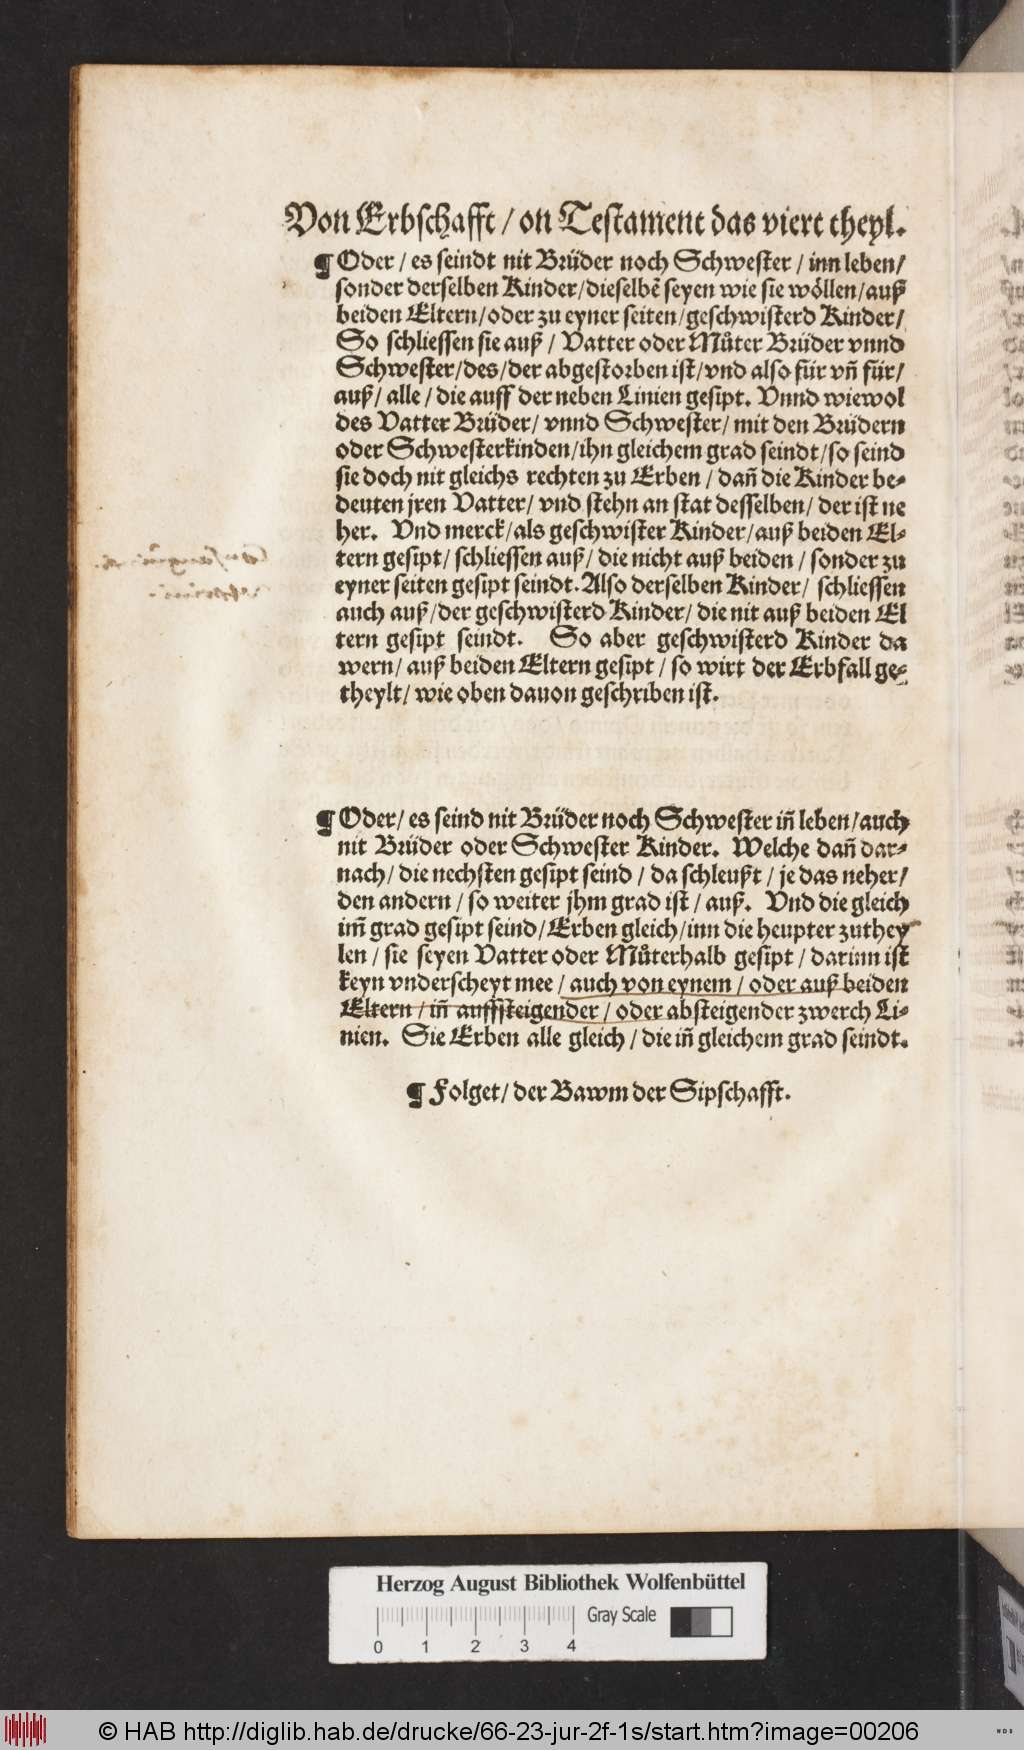 Von Erbschafft / on Testament das viert theyl.
¶ Oder / es seindt nit Brüder noch Schwester / inn leben /
sonder derselben Kinder / dieselbẽ seyen wie sie wöllen / auß
beiden Eltern / oder zu eyner seiten / geschwisterd Kinder /
So schliessen sie auß / Vatter oder Můter Brüder vnnd
Schwester / des / der abgestorben ist / vnd also für vñ für /
auß / alle / die auff der neben Linien gesipt. Vnnd wiewol
des Vatter Brüder / vnnd Schwester / mit den Brüdern
oder Schwesterkinden / ihn gleichem grad seindt / so seind
sie doch nit gleichs rechten zu Erben / dañ die Kinder be-
deuten jren Vatter / vnd stehn an stat desselben / der ist ne
her. Vnd merck / als geschwister Kinder / auß beiden El-
tern gesipt / schliessen auß / die nicht auß beiden / sonder zu
eyner seiten gesipt seindt. Also derselben Kinder / schliessen
auch auß / der geschwisterd Kinder / die nit auß beiden El
tern gesipt seindt. So aber geschwisterd Kinder da
wern / auß beiden Eltern gesipt / so wirt der Erbfall ge-
theylt / wie oben dauon geschriben ist.
¶ Oder / es seind nit Brüder noch Schwester iñ leben / auch
nit Brüder oder Schwester Kinder. Welche dañ dar-
nach / die nechsten gesipt seind / da schleußt / je das neher /
den andern / so weiter jhm grad ist / auß. Vnd die gleich
im̃ grad gesipt seind / Erben gleich / inn die heupter zuthey
len / sie seyen Vatter oder Můterhalb gesipt / darinn ist
keyn vnderscheyt mee / auch von eynem / oder auß beiden
Eltern / iñ auffsteigender / oder absteigender zwerch Li-
nien. Sie Erben alle gleich / die iñ gleichem grad seindt.
¶ Folget / der Bawm der Sipschafft.
Herzog August Bibliothek Wolfenbüttel
Gray Scale
0 1 2 3 4
© HAB http://diglib.hab.de/drucke/66-23-jur-2f-1s/start.htm?image=00206